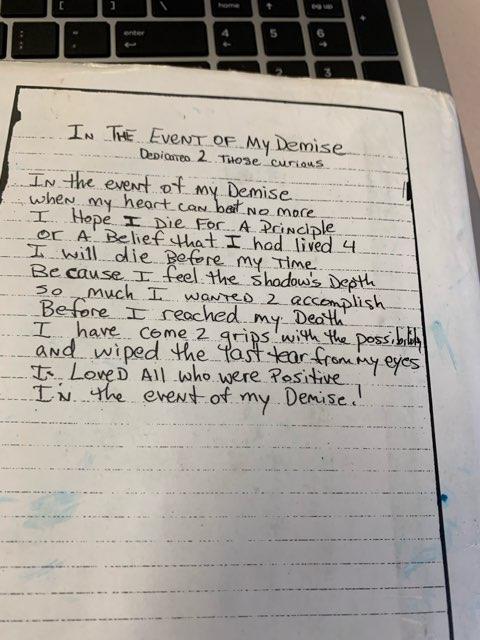 home
pg up
enter
4
5
6
2
3
In The Event of My Demise
Dedicated 2 Those curious
In the event of my Demise
when my heart can beat no more
I Hope I Die For A Principle
or A Belief that I had lived 4
I will die Before my Time
Because I feel the shadow's Depth
so much I wanted 2 accomplish
Before I reached my Death
I have come 2 grips with the possibility
and wiped the last tear from my eyes
I Loved All who were Positive
In the event of my Demise!